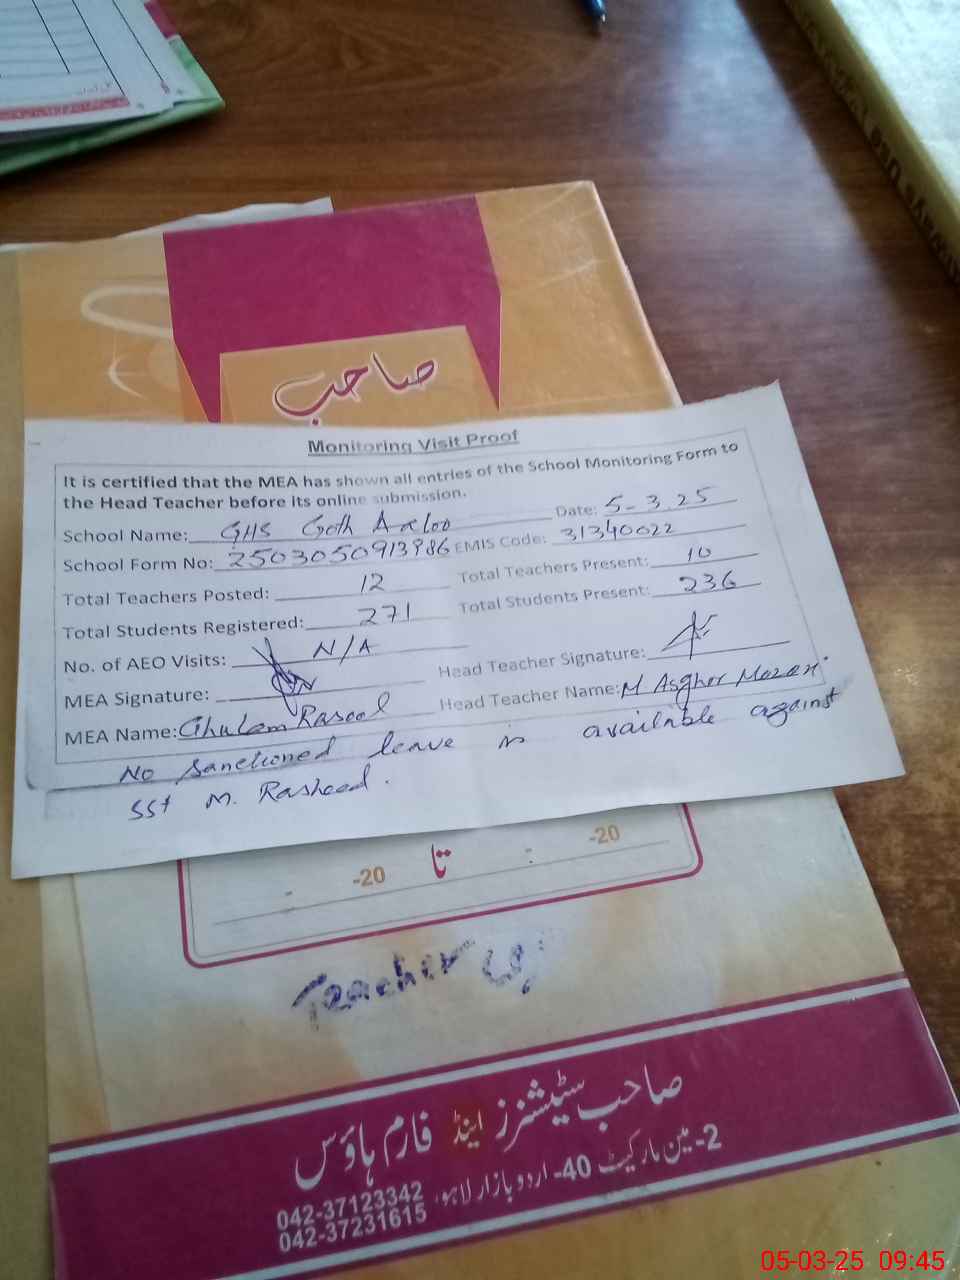 صاحب
Monitoring Visit Proof
It is certified that the MEA has shown all entries of the School Monitoring Form to
the Head Teacher before its online submission.
School Name: GHS Goth Date: 5-3.25
School Form No: 2503050913986 EMIS Code: 31340022
Total Teachers Posted: 12 Total Teachers Present: 10
Total Students Registered: 271 Total Students Present: 236
No. of AEO Visits: N/A
MEA Signature: Head Teacher Signature:
MEA Name: Ghulam Rasool Head Teacher Name: M Asghar
No sanctioned leave is available against
SST M. Rasheed.
-20 تا -20
Teacher
صاحب سٹیشنرز اینڈ فارم ہاؤس
2-مین مارکیٹ 40-اردو بازار لاہور
042-37123342
042-37231615
05-03-25 09:45